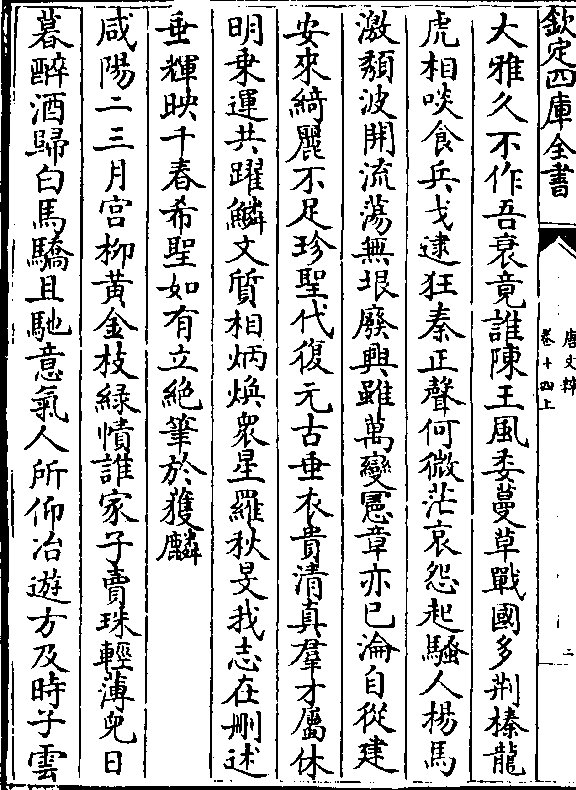 欽定四庫全書
唐文粹
卷十四上
二
大雅久不作吾衰竟誰陳王風委蔓草戰國多荆榛龍
虎相啖食兵戈逮狂秦正聲何微茫哀怨起騷人楊馬
激頽波開流蕩無垠廢興雖萬變憲章亦已淪自從建
安來綺麗不足珍聖代復元古垂衣貴清真羣才屬休
明乗運共躍鱗文質相炳煥衆星羅秋旻我志在刪述
垂輝映千春希聖如有立絶筆於獲麟
咸陽二三月宫柳黄金枝緑幘誰家子賣珠輕薄兒日
暮醉酒歸白馬驕且馳意氣人所仰冶遊方及時子雲